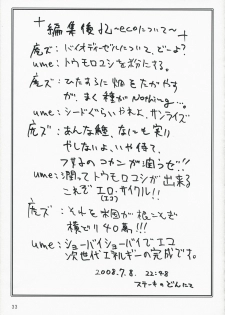 編集後記 ~ecoについて~
虎ズ: バイオディーゼルについて、どーよ?
ume: トウモロコシを粉にする。
虎ズ: ひたすらに畑をたがやす
が、まく種がNothing…。
ume: シードぐらいやれよ、サンライズ
虎ズ: あんな種、なにも実り
やしないよ、いや待て、
フタ子のコカンが潤うぜ!!
ume: 潤ってトウモロコシが出来る
これぞ エロ・サイクル!!
(エコ)
虎ズ: それを米国が根こそぎ
横どり40萬!!!
ume: ショーバイショーバイでエコ
次世代エネルギーの完成です。
2008.7.8. 22:48
ステーキのどんたて
22